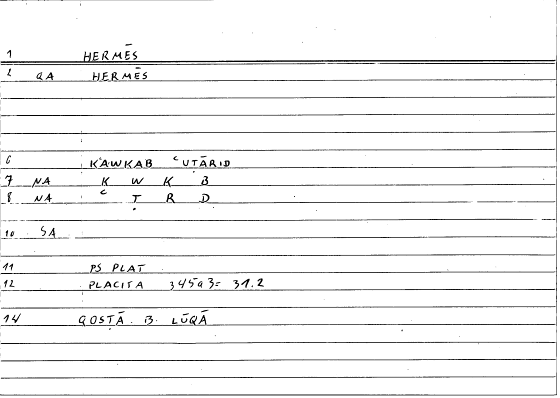 1 HERMĒS
2 GA HERMĒS
6 KAWKAB ʿUṬĀRID
7 NA K W K B
8 NA ʿ Ṭ R D
10 SA
11 PS PLAT
12 PLACITA 345a3= 31.2
14 QOSṬĀ B. LŪQĀ